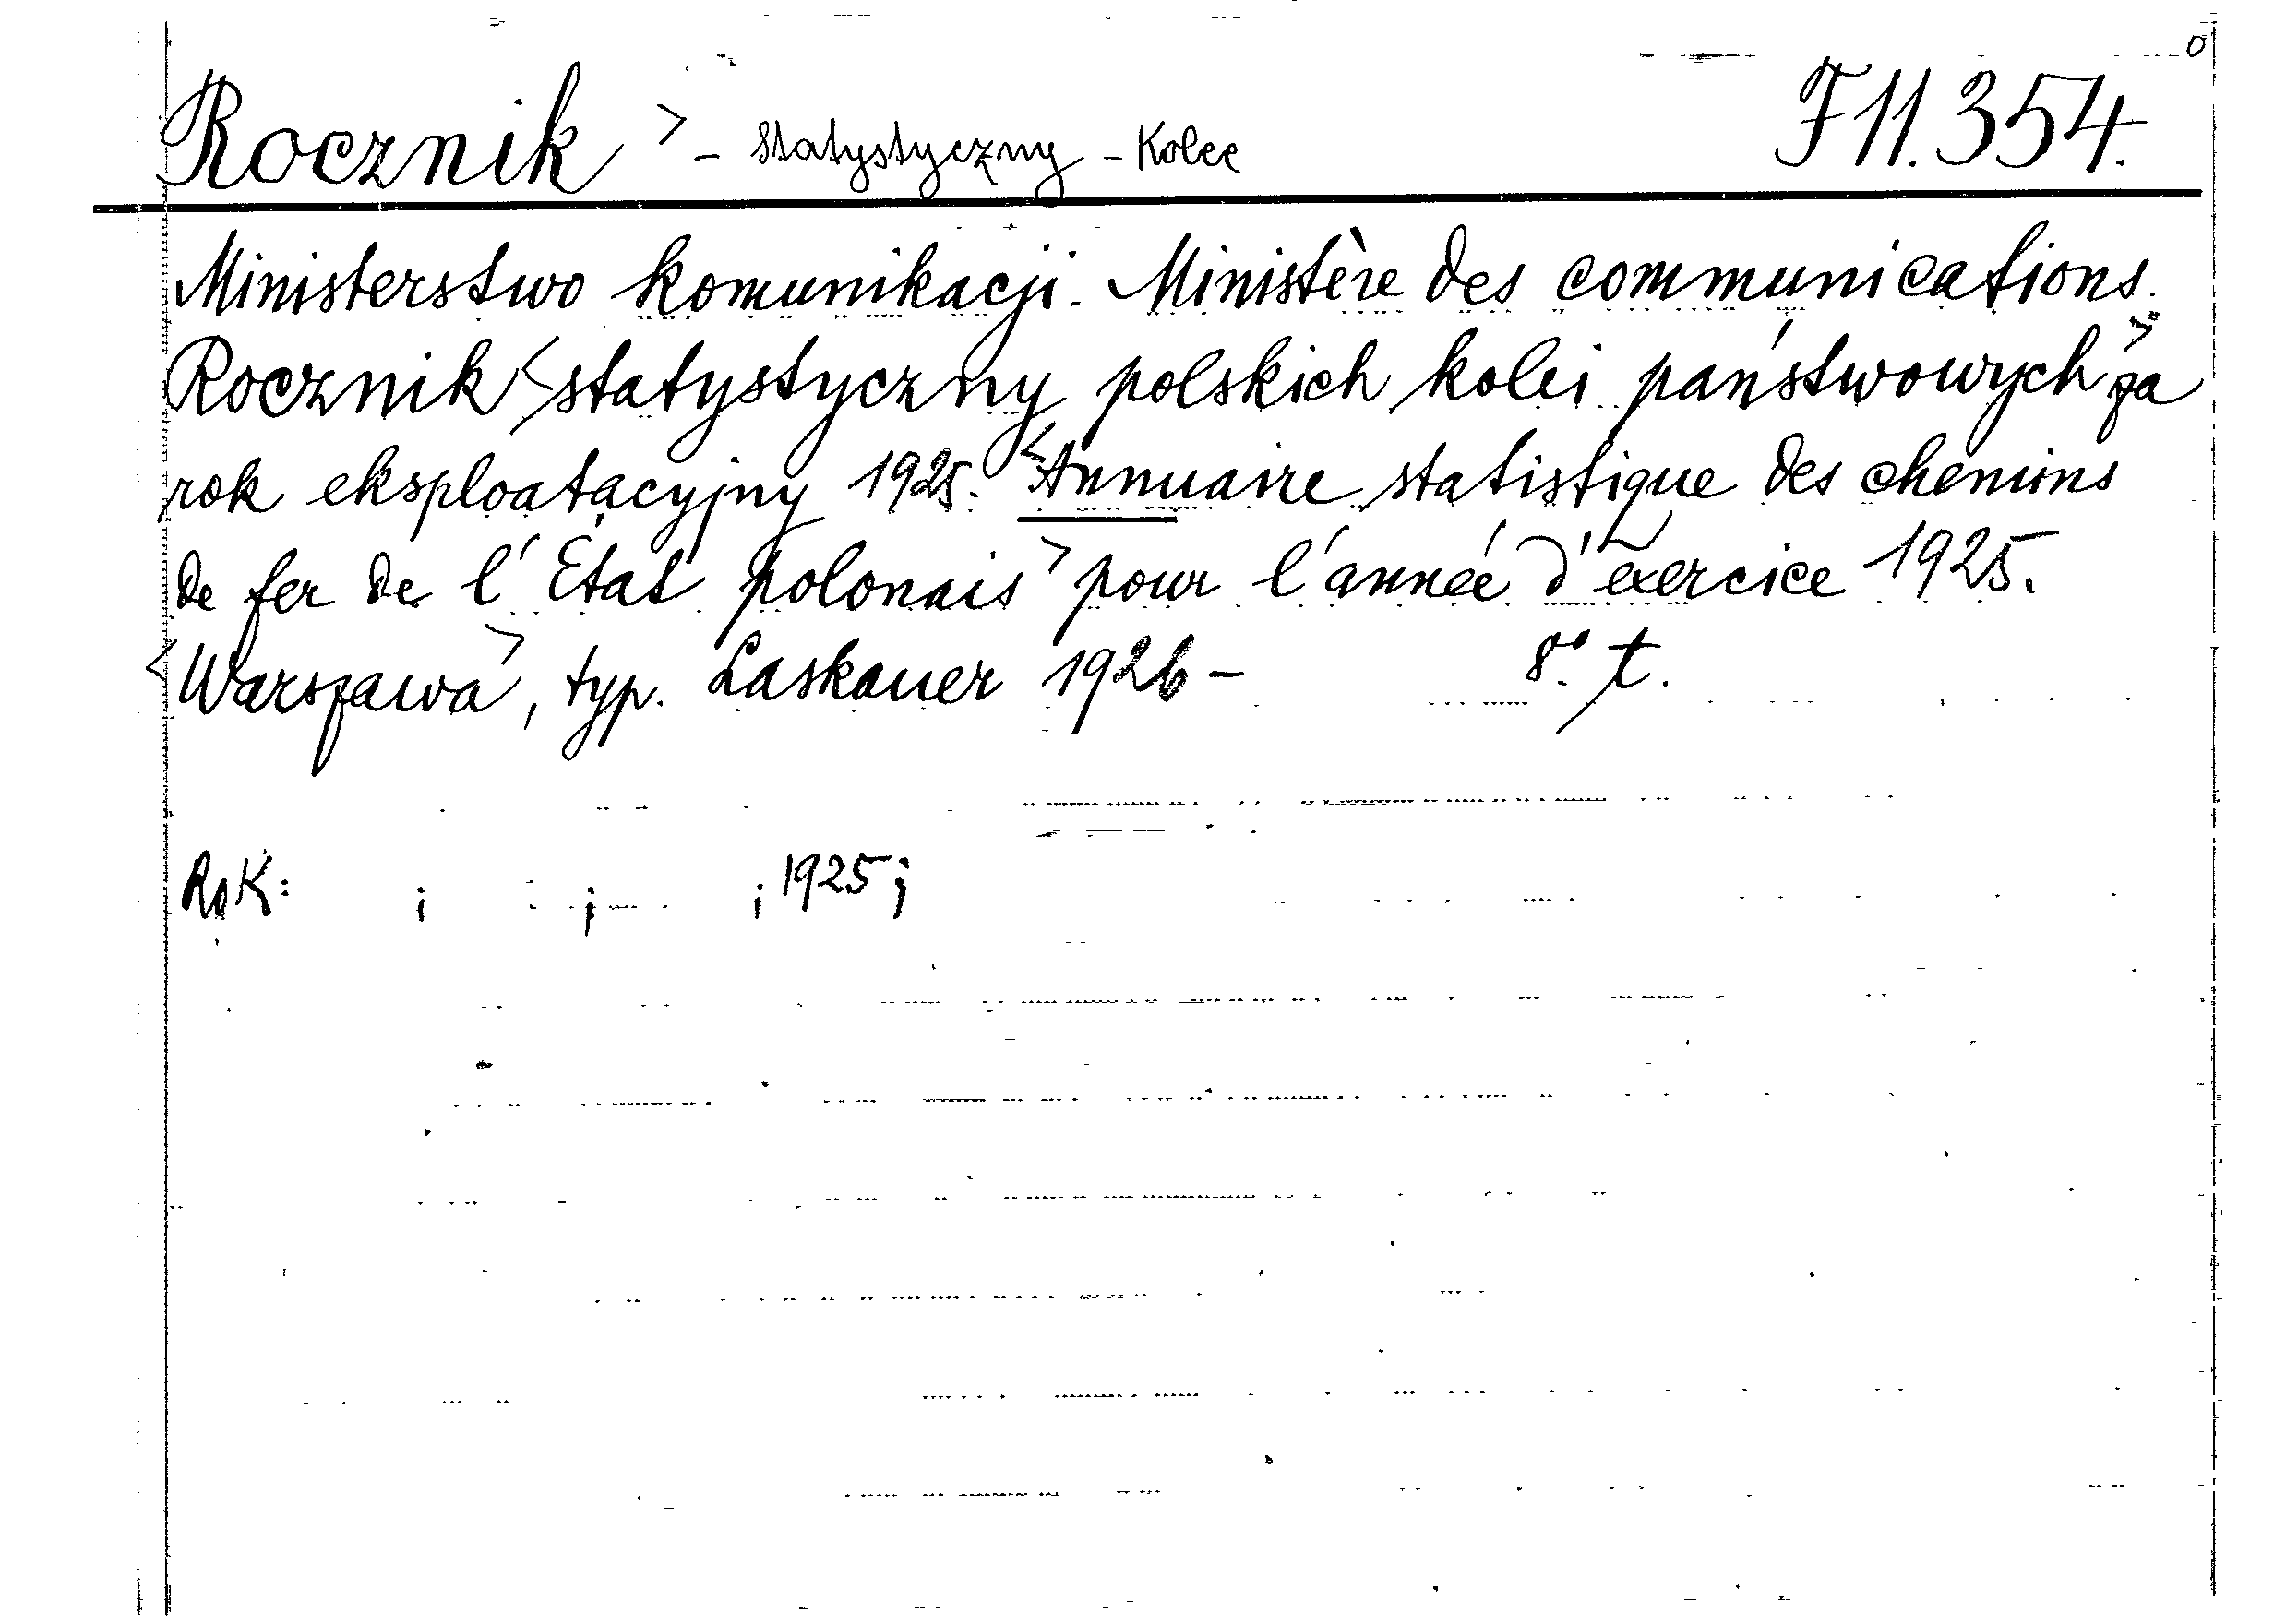 Rocznik > - statystyczny - Kolee F 11.354.
Ministerstwo komunikacji. Ministère des communications.
Rocznik <statystyczny polskich kolei państwowych> za
rok eksploatacyjny 1925. <Annuaire statistique des chemins
de fer de l'État polonais> pour l'année d'exercice 1925.
<Warszawa>, typ. Laskauer 1926 - 8º. t.
Rok: ; ; ; 1925;